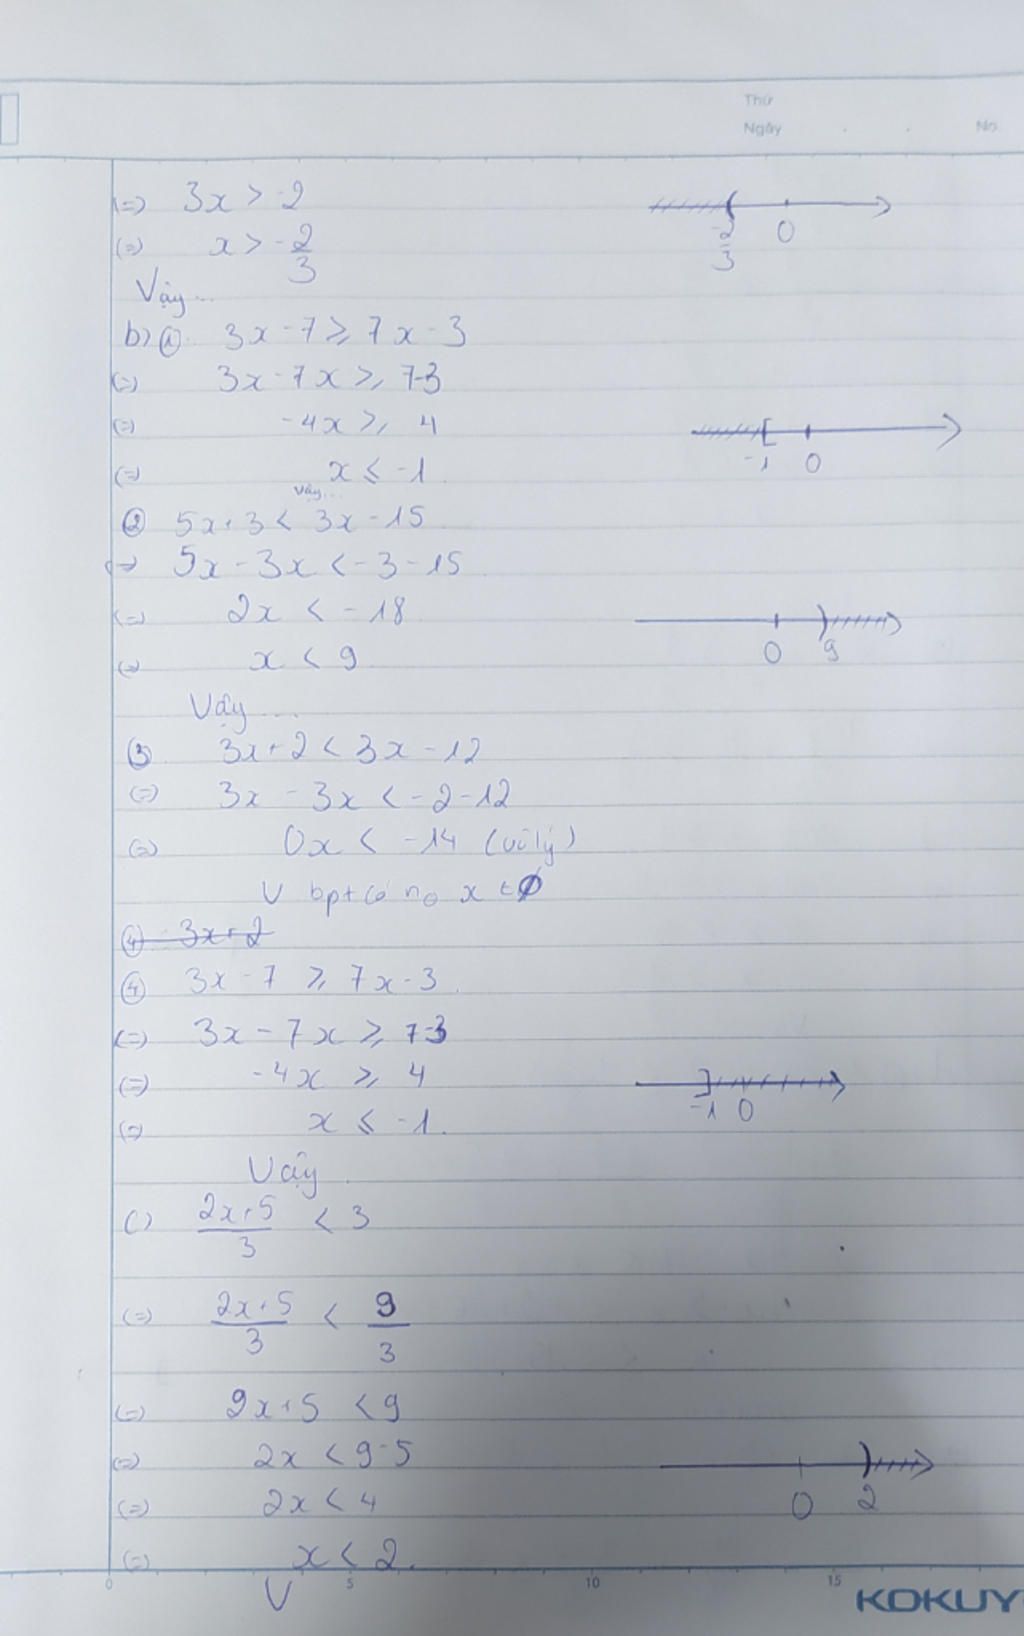 Thứ
Ngày . . No.
(=) 3x > -2
(=) x > -2/3
-2/3 0
Vậy...
b) ① 3x - 7 ⩾ 7x - 3
(=) 3x - 7x ⩾ 7-3
(=) -4x ⩾ 4
-1 0
(=) x ⩽ -1
Vậy...
② 5x + 3 < 3x - 15
(=) 5x - 3x < -3 - 15
(=) 2x < -18
(=) x < 9
0 9
Vậy...
③ 3x + 2 < 3x - 12
(=) 3x - 3x < -2 - 12
(=) 0x < -14 (vô lý)
V bpt có no x ∈ Ø
④ 3x + 2
④ 3x - 7 ⩾ 7x - 3
(=) 3x - 7x ⩾ 7-3
(=) -4x ⩾ 4
-1 0
(=) x ⩽ -1.
Vậy
c) (2x+5)/3 < 3
(=) (2x+5)/3 < 9/3
(=) 2x + 5 < 9
(=) 2x < 9-5
(=) 2x < 4
0 2
(=) x < 2.
V
0 5 10 15
KOKUY